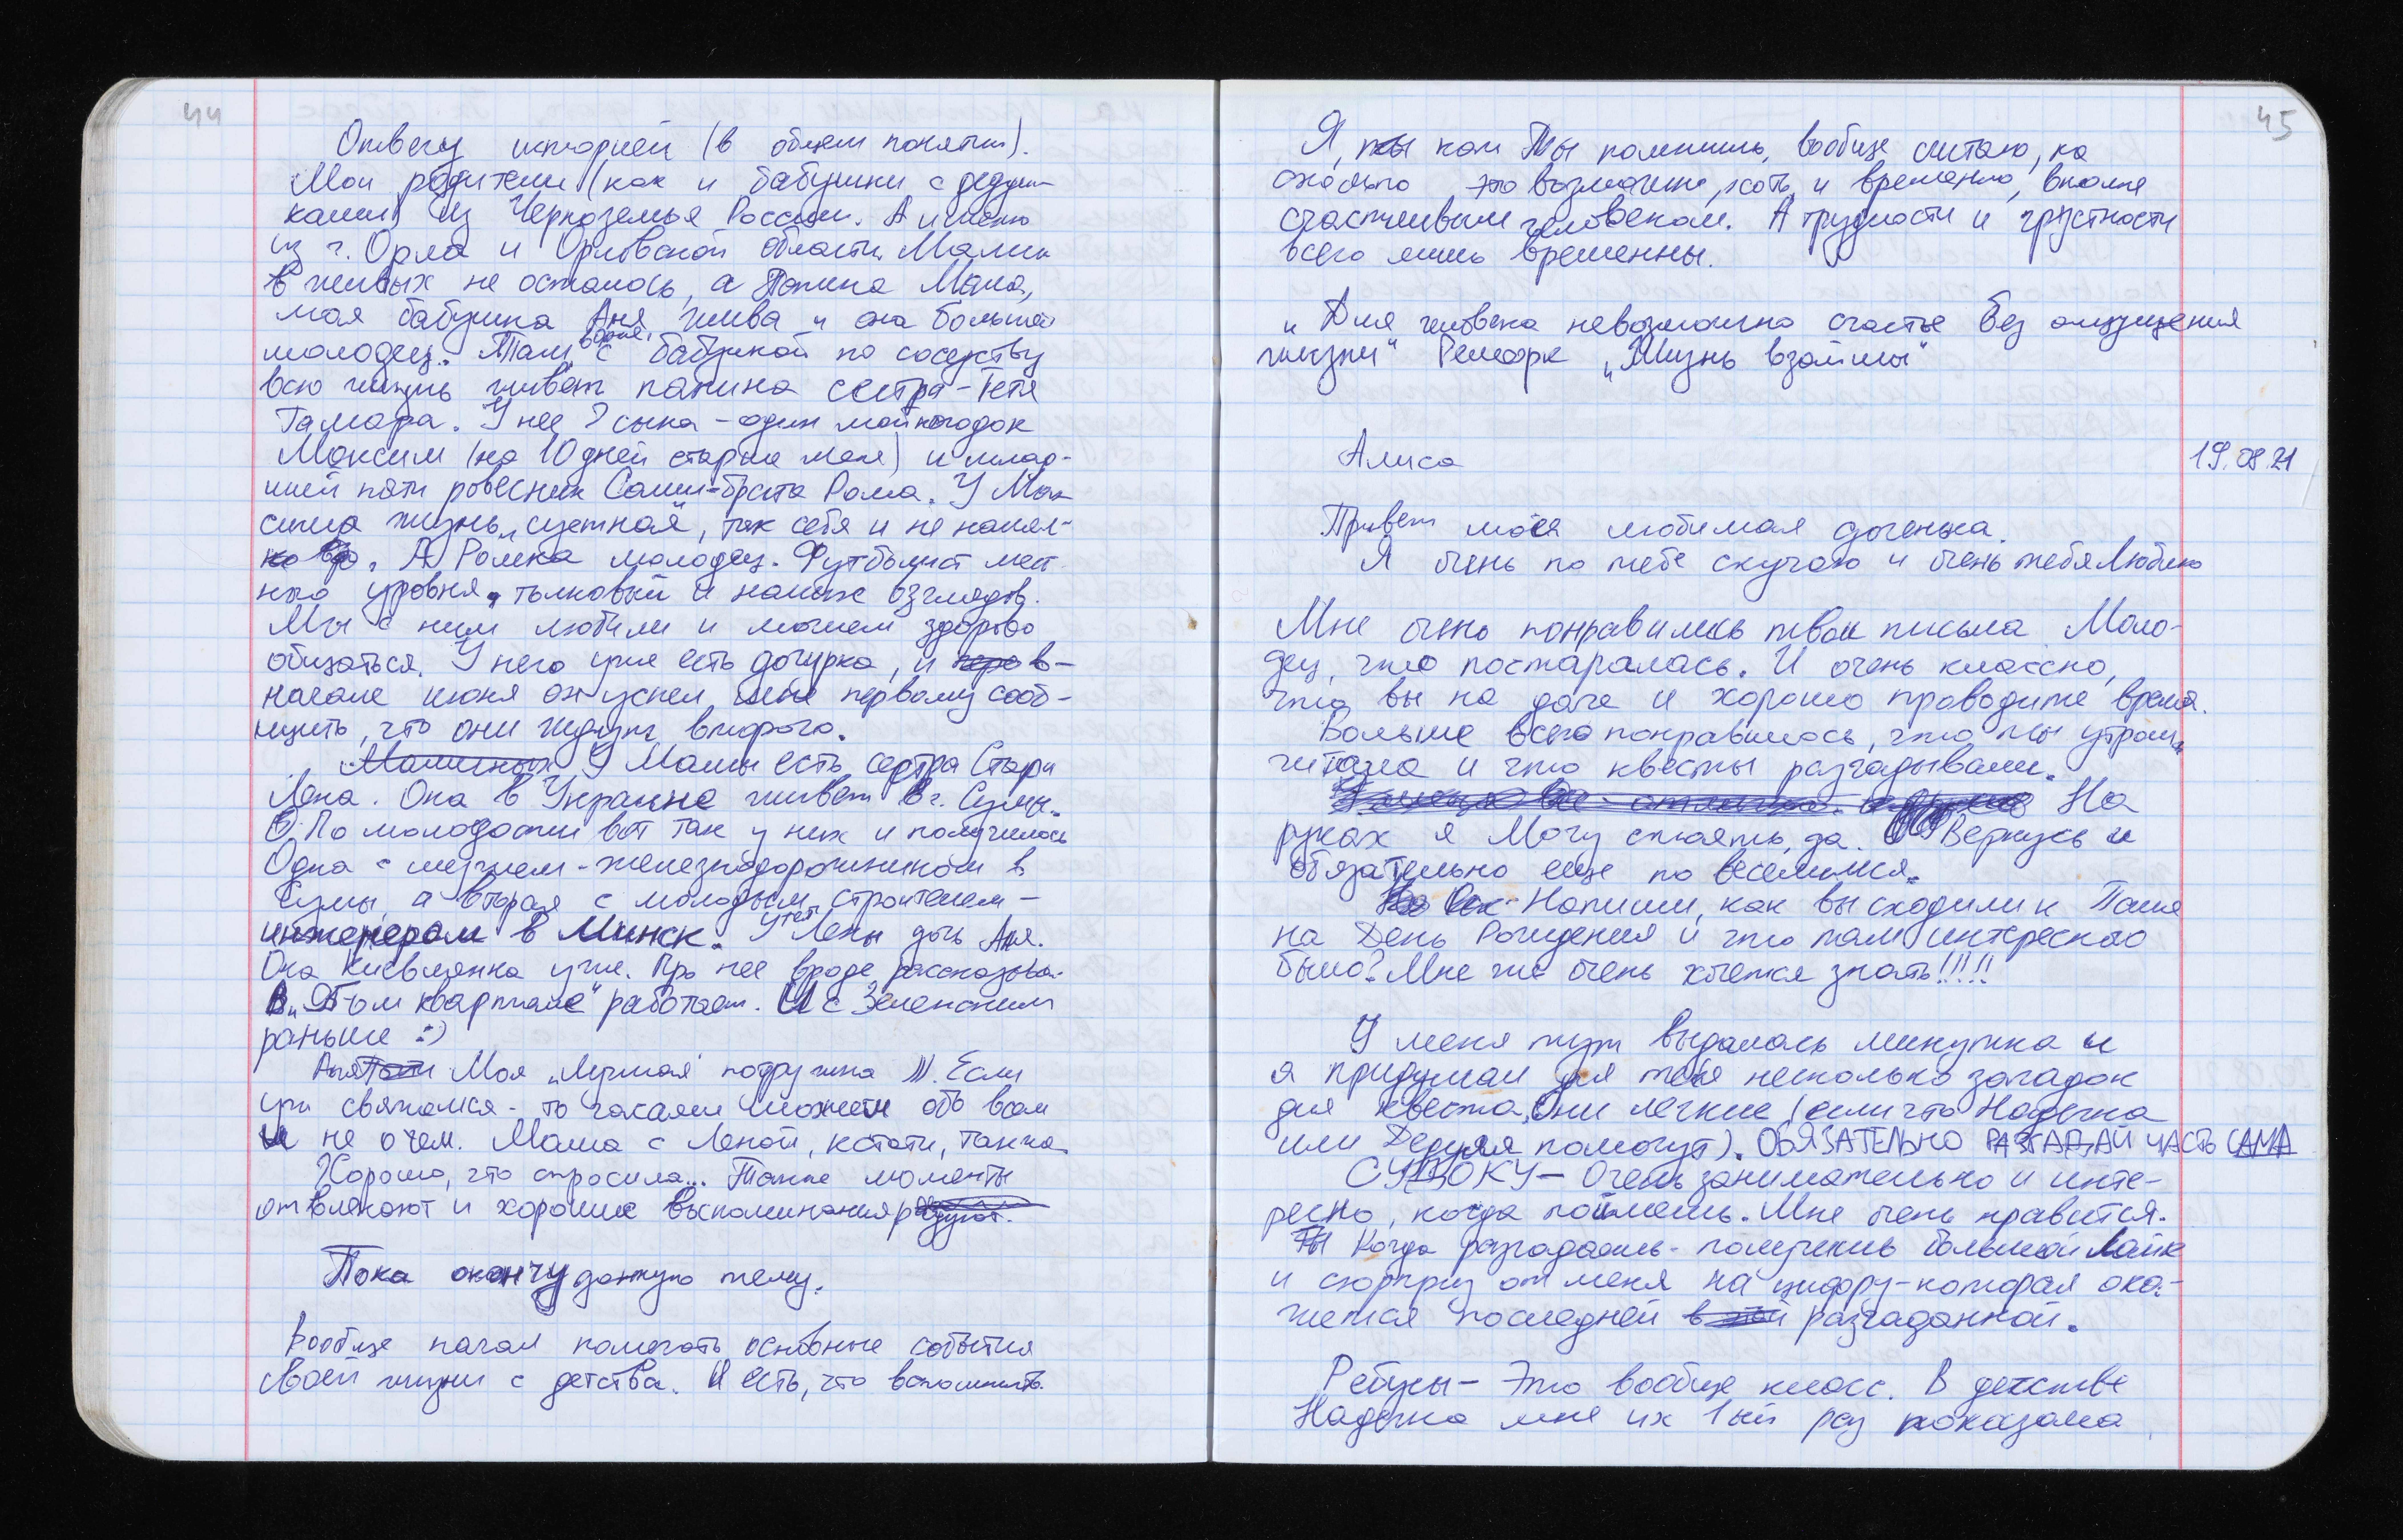 44
Отвечу историей (в общем понятии).
Мои родители (как и бабушки с дедуш-
ками) из Черноземья России. А именно
из г. Орла и Орловской области. Мамин
в живых не осталось, а Папина Мама,
моя бабушка Аня жива и она большой
молодец. Там, в Орле, с бабушкой по соседству
всю жизнь живет папина сестра - Тетя
Тамара. У нее 2 сына - один мой погодок
Максим (на 10 дней старше меня) и млад-
ший почти ровесник Саши-брата Рома. У Мак
сима жизнь „суетная", так себя и не нашел
А Ромка молодец. Футболист мест
ного уровня, толковый и наших взглядов.
Мы с ним любим и можем здорово
общаться. У него уже есть дочурка, и в
начале июня он успел мне первому сооб-
щить, что они ждут второго.
У Мамы есть сестра Стар
Лена. Она в Украине живет в г. Сумы.
По молодости вот так у них и получилось
Одна с мужем - железнодорожником в
Сумы, а вторая с молодым строителем -
инженером в Минск. У тети Лены дочь Аня.
Она киевлянка уже. Про нее вроде рассказывал
В „95-ом квартале" работает. И с Зеленским
раньше :)
Моя „лучшая" подружка ))). Если
уж свяжемся - то часами можем обо всем
и не о чем. Мама с Леной, кстати, также
Хорошо, что спросила... Такие моменты
отвлекают и хорошие воспоминания радуют.
Пока окончу данную тему.
Вообще начал помечать основные события
своей жизни с детства. И есть, что вспомнить.
45
Я, как Ты помнишь, вообще считаю, на
сколько это возможно, хоть и временно, вполне
счастливым человеком. А трудности и грустности
всего лишь временны.
„Для человека невозможно счастье без ощущения
жизни" Ремарк „Жизнь взаймы"
Алиса 19.08.21
Привет моя любимая доченька.
Я очень по тебе скучаю и очень тебя Люблю
Мне очень понравились твои письма Моло-
дец, что постаралась. И очень классно,
что вы на даче и хорошо проводите время.
Больше всего понравилось, что ты утром
читала и что квесты разгадывали.
На
руках я Могу стоять, да. Вернусь и
обязательно еще по веселимся.
Напиши, как вы сходили к Паше
на День Рождения и что там интересного
было? Мне же очень хочется знать!!!!!
У меня тут выдалась минутка и
я придумал для тебя несколько загадок
для квеста. Они легкие (если что Надечка
или Дедуля помогут). ОБЯЗАТЕЛЬНО РАЗГАДАЙ ЧАСТЬ САМА
СУДОКУ - Очень занимательно и инте-
ресно, когда поймешь. Мне очень нравится.
Когда разгадаешь - получишь большой Лайк
и сюрприз от меня на цифру - которая ока-
жется последней разгаданной.
Ребусы - Это вообще класс. В детстве
Надечка мне их 1ый раз показала